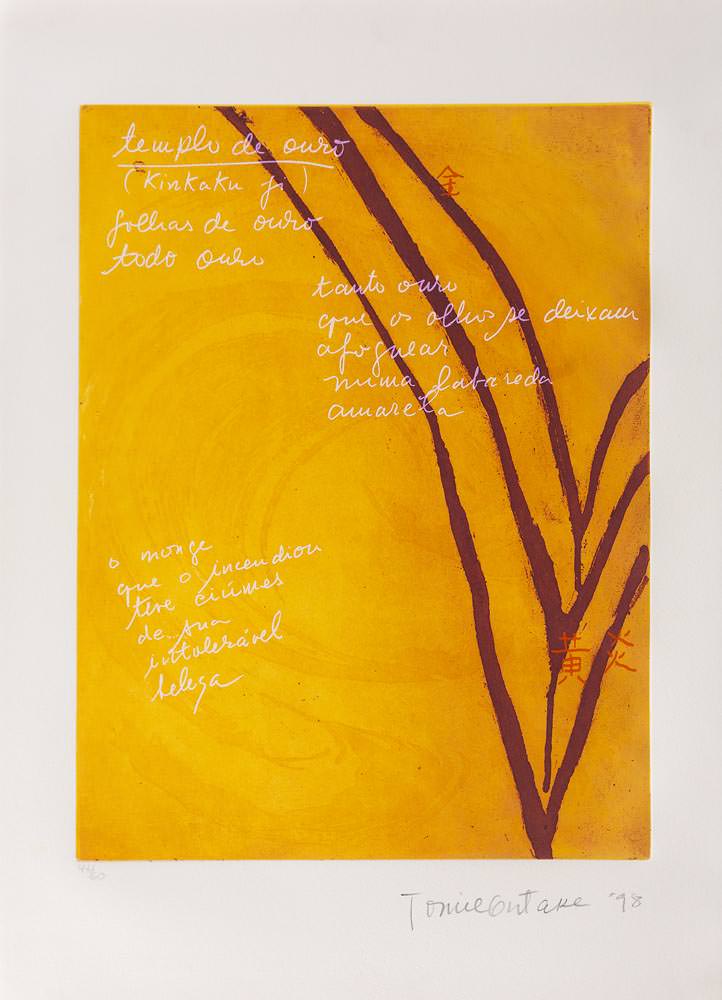 templo de ouro
(Kinkaku ji)
folhas de ouro
todo ouro
金
tanto ouro
que os olhos se deixam
afoguear
numa labareda
amarela
o monge
que o incendiou
teve ciúmes
de sua
intolerável
beleza
黄炎
44/60
Tomie Ohtake '98